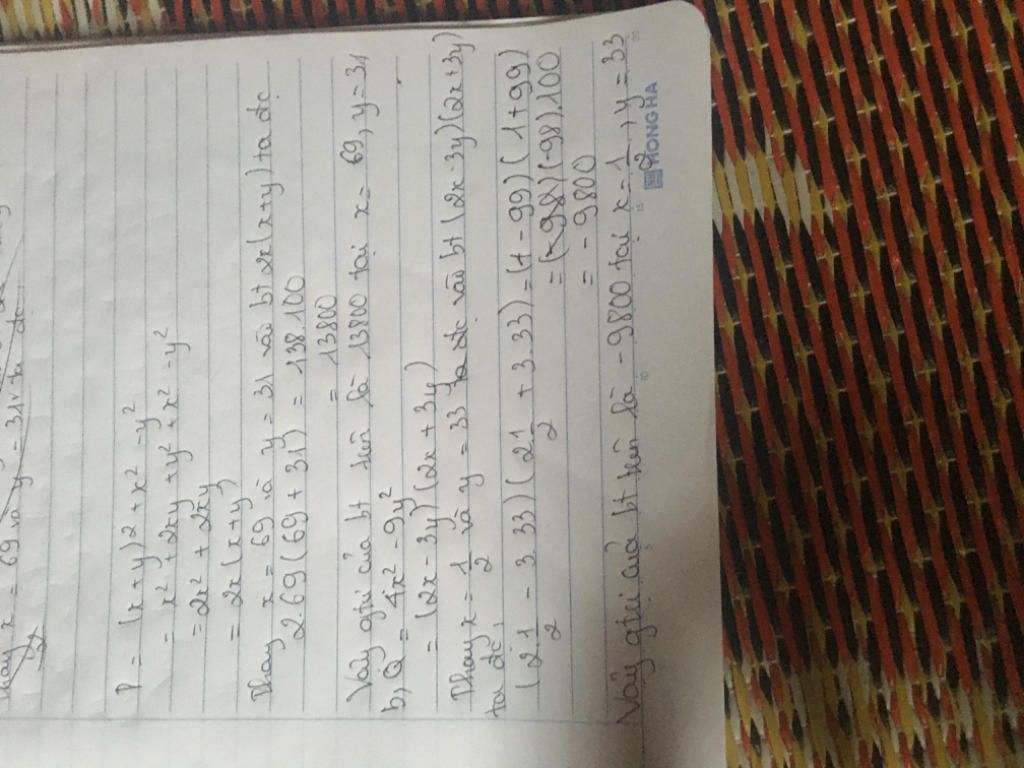 Thay x = 69 và y = 31 v ta dc
P = (x + y)2 + x² - y²
= x² + 2xy + y² + x² - y²
= 2x² + 2xy
= 2x(x+y)
Thay x = 69 và y = 31 vào bt 2x(x+y) ta dc
2.69(69 + 31) = 138.100
= 13800
Vậy giá của bt trên là 13800 tại x = 69, y = 31
b, Q = 4x² - 9y²
= (2x - 3y)(2x + 3y)
Thay x = 1/2 và y = 33 ta dc vào bt (2x - 3y)(2x+3y)
ta dc,
(2.1/2 - 3.33)(2.1/2 + 3.33) = (1 - 99)(1+99)
= (-98)(-98).100
= - 9800
Vậy giá của bt trên là -9800 tại x = 1/2, y = 33
HONG HA